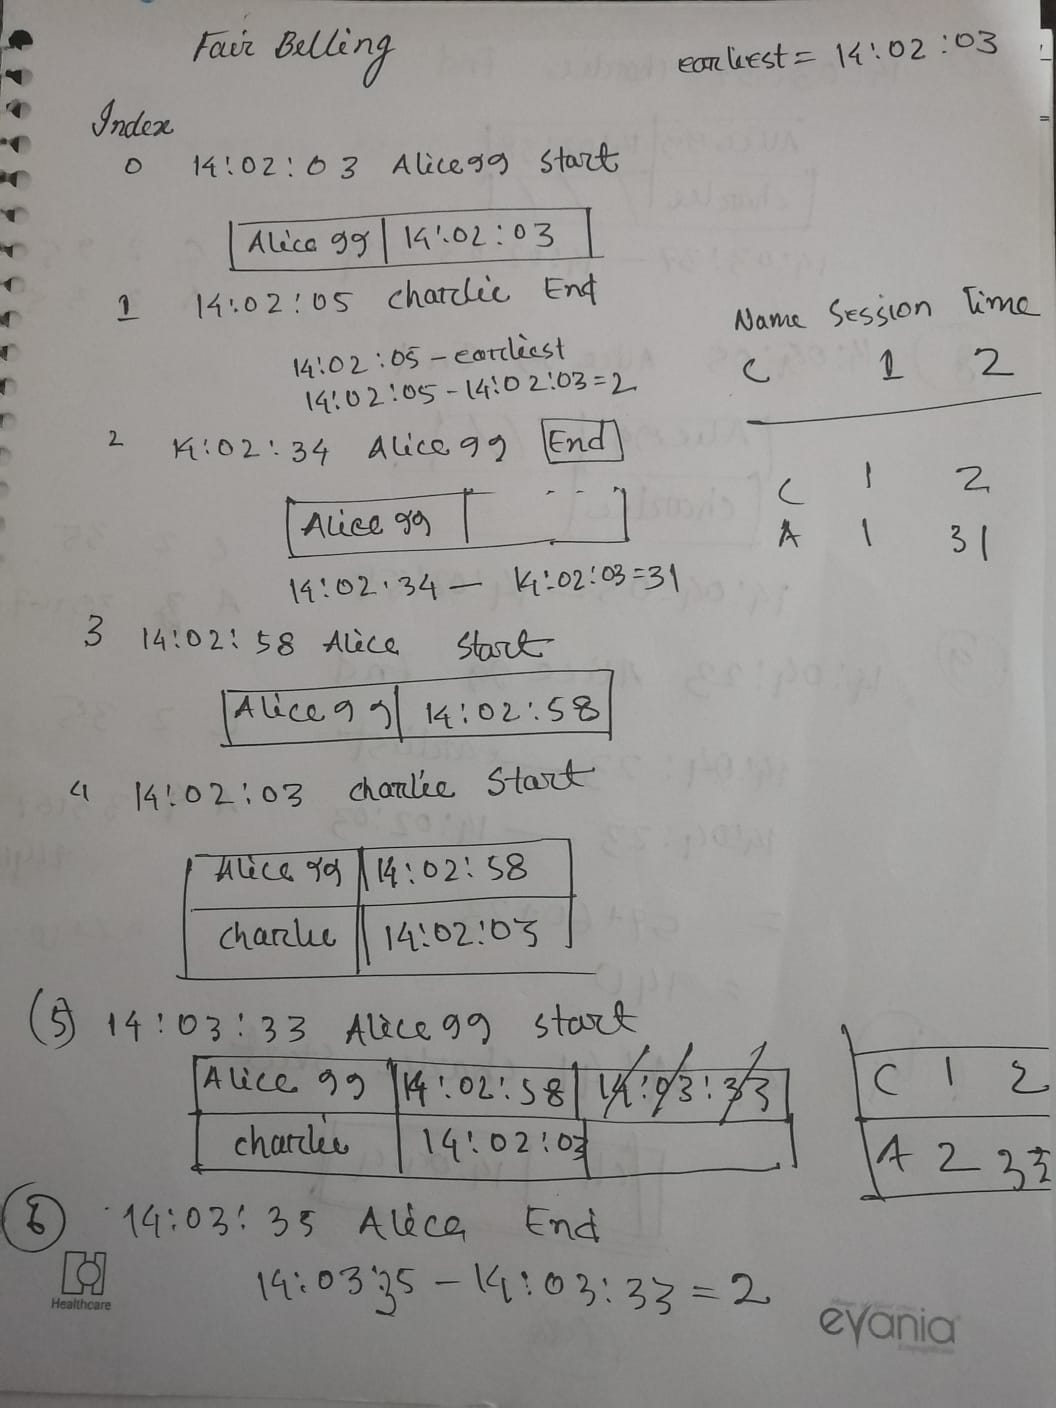 Fair Belling
earliest = 14:02:03
Index
0 14:02:03 Alice99 start
Alice 99 14:02:03
1 14:02:05 charlie End
14:02:05 - earliest
14:02:05 - 14:02:03 = 2
Name Session Time
C 1 2
2 14:02:34 Alice 99 End
Alice 99
14:02:34 — 14:02:03 = 31
C 1 2
A 1 31
3 14:02:58 Alice start
Alice 99 14:02:58
4 14:02:03 charlie Start
Alice 99 14:02:58
charlie 14:02:03
(5) 14:03:33 Alice 99 start
Alice 99 14:02:58 14:03:33
charlie 14:02:03
C 1 2
A 2 33
6 14:03:35 Alice End
14:03:35 - 14:03:33 = 2
Healthcare
evania